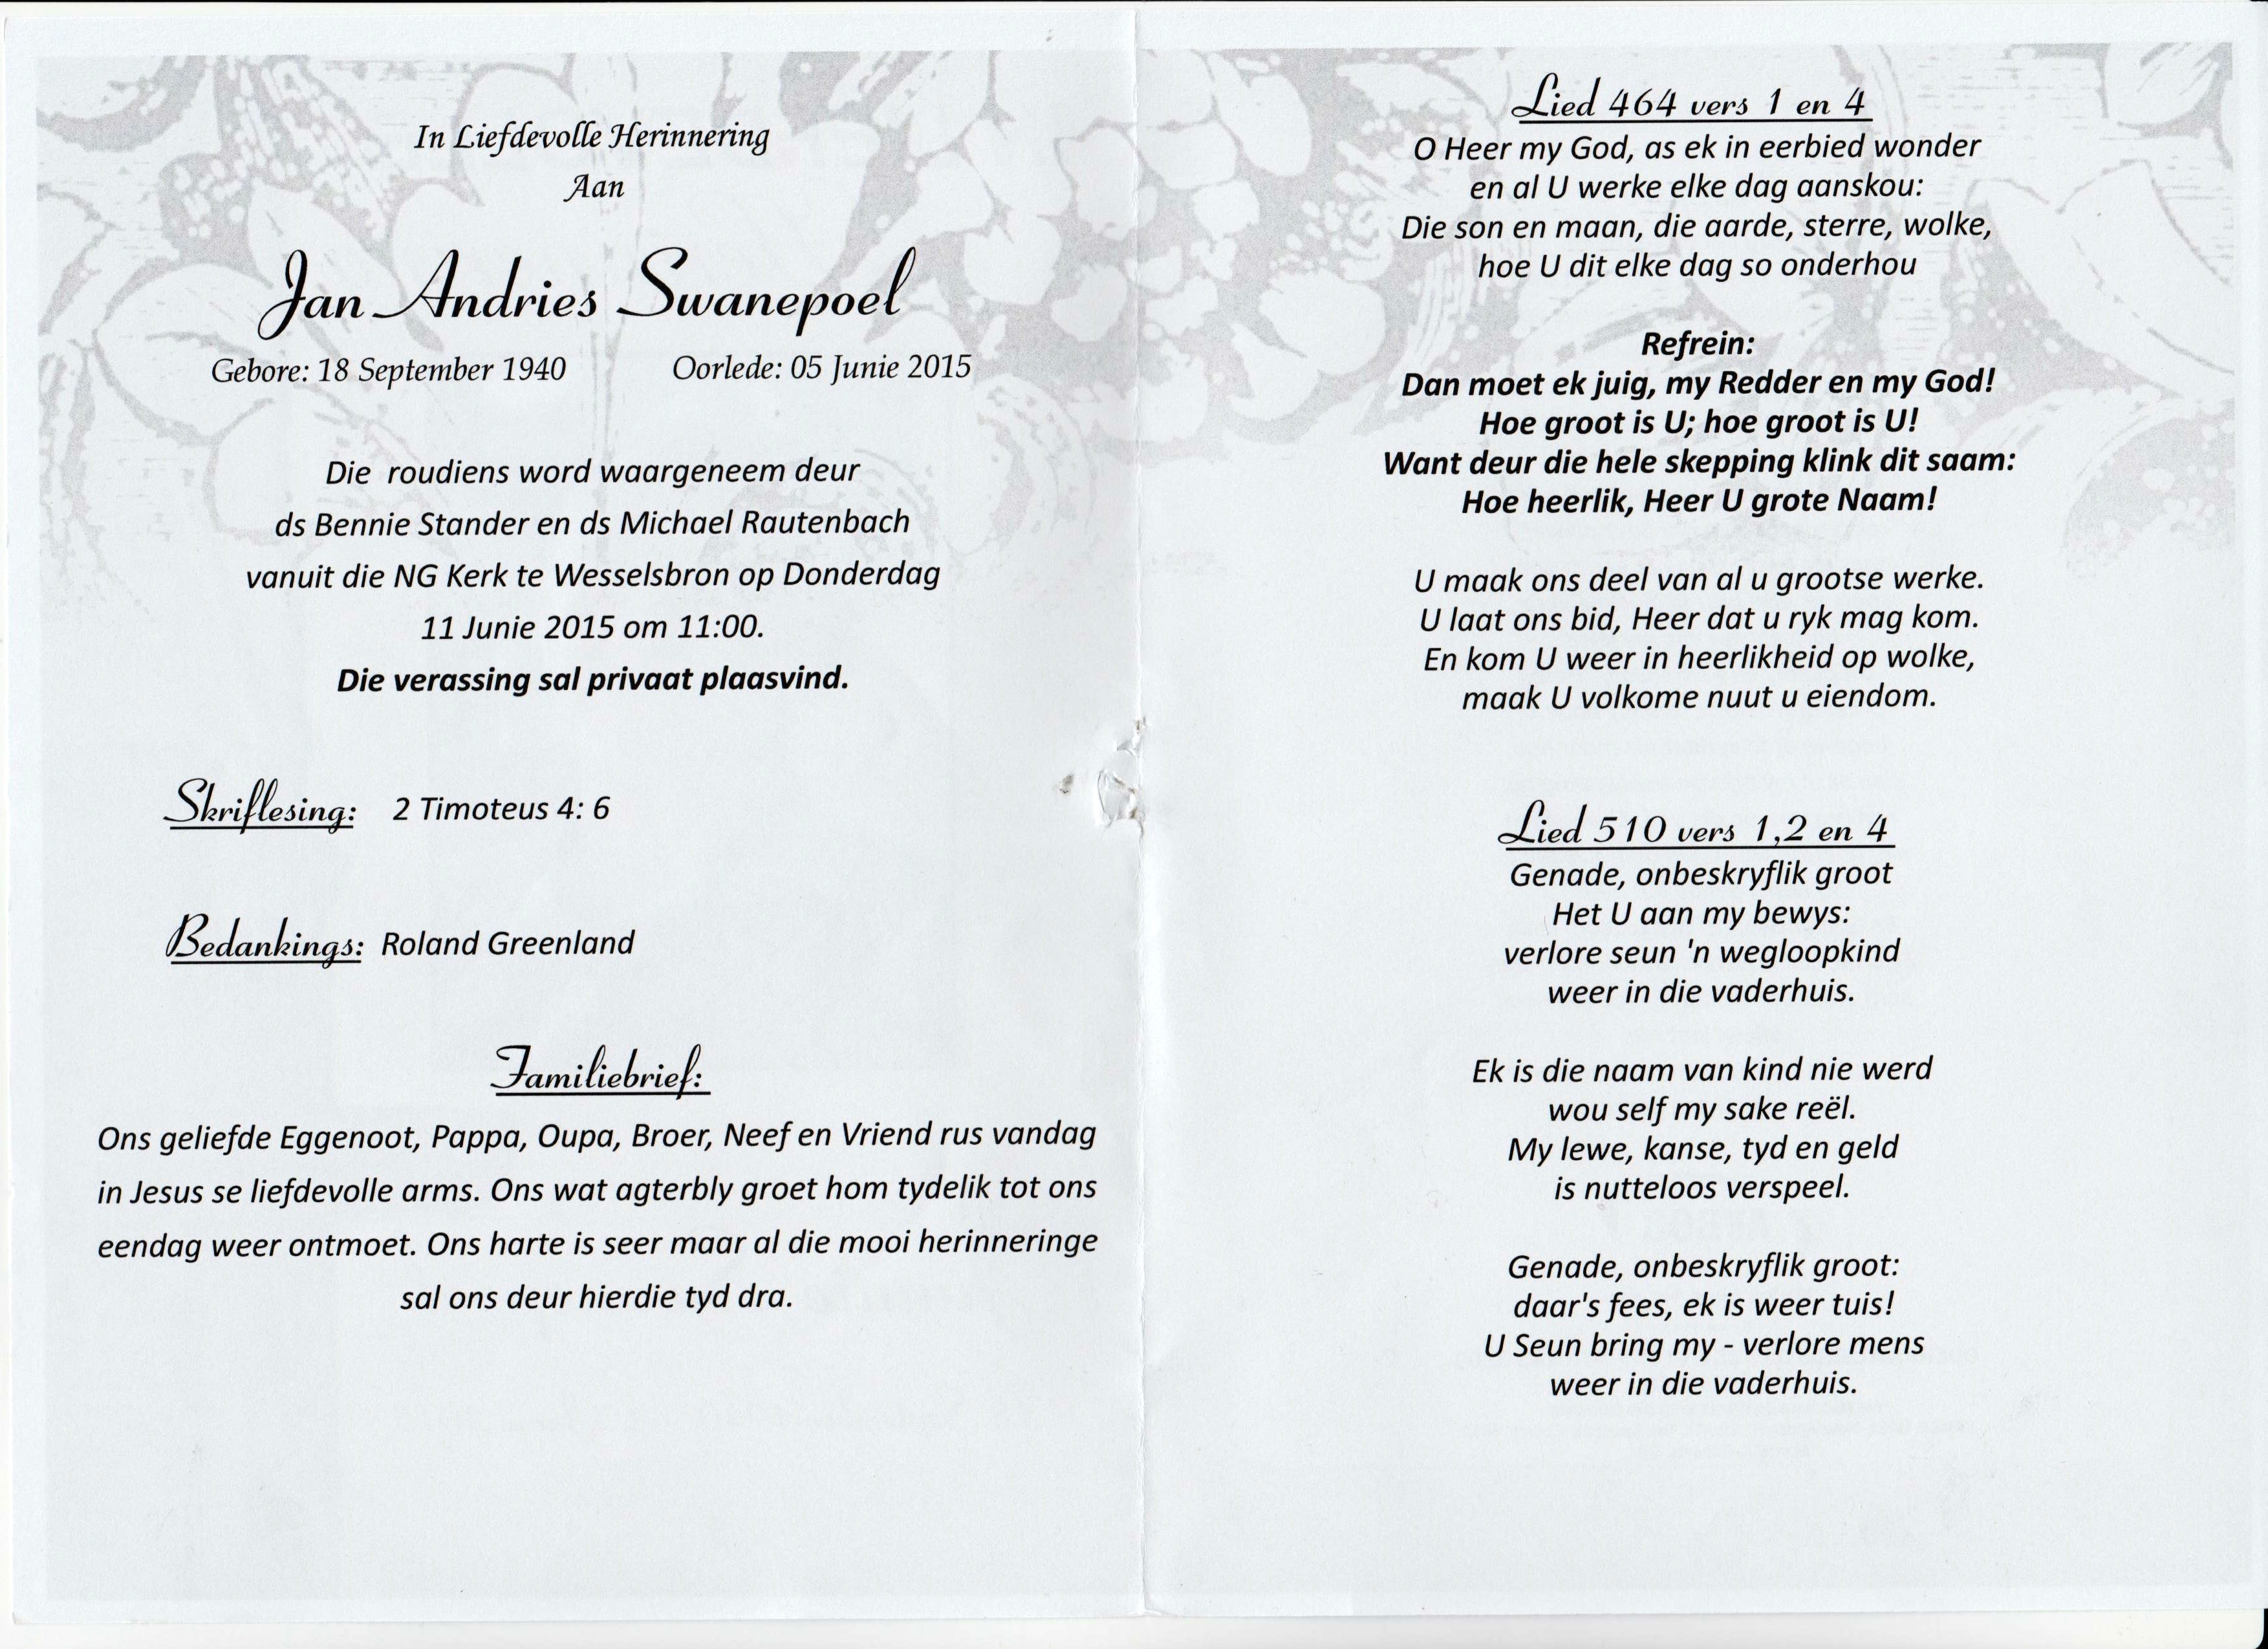 In Liefdevolle Herinnering
Aan
Jan Andries Swanepoel
Gebore: 18 September 1940 Oorlede: 05 Junie 2015
Die roudiens word waargeneem deur
ds Bennie Stander en ds Michael Rautenbach
vanuit die NG Kerk te Wesselsbron op Donderdag
11 Junie 2015 om 11:00.
Die verassing sal privaat plaasvind.
Skriflesing: 2 Timoteus 4: 6
Bedankings: Roland Greenland
Familiebrief:
Ons geliefde Eggenoot, Pappa, Oupa, Broer, Neef en Vriend rus vandag
in Jesus se liefdevolle arms. Ons wat agterbly groet hom tydelik tot ons
eendag weer ontmoet. Ons harte is seer maar al die mooi herinneringe
sal ons deur hierdie tyd dra.
Lied 464 vers 1 en 4
O Heer my God, as ek in eerbied wonder
en al U werke elke dag aanskou:
Die son en maan, die aarde, sterre, wolke,
hoe U dit elke dag so onderhou
Refrein:
Dan moet ek juig, my Redder en my God!
Hoe groot is U; hoe groot is U!
Want deur die hele skepping klink dit saam:
Hoe heerlik, Heer U grote Naam!
U maak ons deel van al u grootse werke.
U laat ons bid, Heer dat u ryk mag kom.
En kom U weer in heerlikheid op wolke,
maak U volkome nuut u eiendom.
Lied 510 vers 1,2 en 4
Genade, onbeskryflik groot
Het U aan my bewys:
verlore seun 'n wegloopkind
weer in die vaderhuis.
Ek is die naam van kind nie werd
wou self my sake reël.
My lewe, kanse, tyd en geld
is nutteloos verspeel.
Genade, onbeskryflik groot:
daar's fees, ek is weer tuis!
U Seun bring my - verlore mens
weer in die vaderhuis.